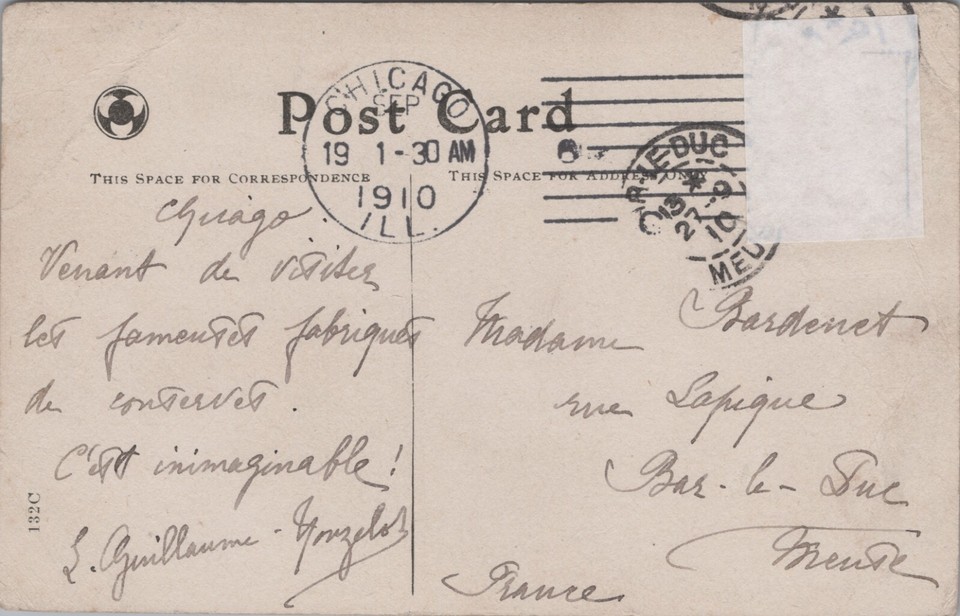 Post Card
CHICAGO
SEP
19 1-30 AM
1910
ILL.
BAR-LE-DUC
13
27-9
10
THIS SPACE FOR CORRESPONDENCE
THIS SPACE FOR ADDRESS ONLY
Chicago.
Venant de visiter
les fameuses fabriques
de conserves.
C'est inimaginable !
L. Guillaume-
132C
Madame Bardenet
rue Lapique
Bar-le-Duc
Meuse
France